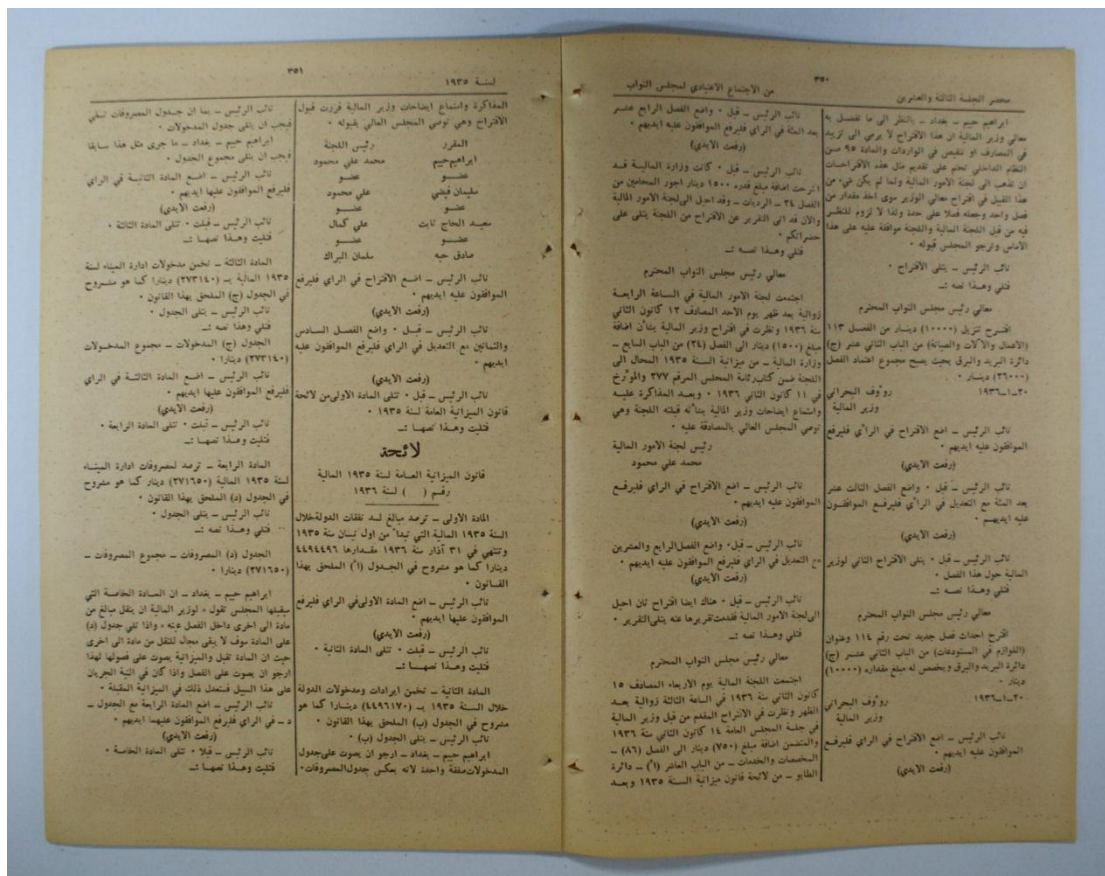 ٣٥٠
محضر الجلسة الثالثة والعشرين
من الاجتماع الاعتيادي لمجلس النواب
ابراهيم حييم ـ بغداد ـ بالنظر الى ما تفضل به
معالي وزير المالية ان هذا الاقتراح لا يرمي الى تزييد
في المصارف او تنقيص في الواردات والمادة ٩٥ من
النظام الداخلي تحتم على تقديم مثل هذه الاقتراحات
ان تذهب الى لجنة الامور المالية ولما لم يكن شيء من
هذا القبيل في اقتراح معالي الوزير سوى اخذ مقدار من
فصل واحد وجعله فصلا على حدة ولذا لا لزوم للنظر
فيه من قبل اللجنة المالية واللجنة موافقة عليه على هذا
الاساس وترجو المجلس قبوله •
نائب الرئيس ـ يتلى الاقتراح •
فتلي وهذا نصه :ـ
معالي رئيس مجلس النواب المحترم
اقترح تنزيل (١٠٠٠٠) دينار من الفصل ١١٣
(الاعمال والآلات والصيانة) من الباب الثاني عشر (ج)
دائرة البريد والبرق بحيث يصبح مجموع اعتماد الفصل
(٢٦٠٠٠) دينار •
٢٠ـ١ـ١٩٣٦ رؤوف البحراني
وزير المالية
نائب الرئيس ـ اضع الاقتراح في الرأي فليرفع
الموافقون عليه ايديهم •
(رفعت الايدي)
نائب الرئيس ـ قبل • واضع الفصل الثالث عشر
بعد المئة مع التعديل في الرأي فليرفع الموافقون
عليه ايديهم •
(رفعت الايدي)
نائب الرئيس ـ قبل • يتلى الاقتراح الثاني لوزير
المالية حول هذا الفصل •
معالي رئيس مجلس النواب المحترم
اقترح احداث فصل جديد تحت رقم ١١٤ وعنوان
(اللوازم في المستودعات) من الباب الثاني عشر (ج)
دائرة البريد والبرق ويخصص له مبلغ مقداره (١٠٠٠٠)
دينار •
٢٠ـ١ـ١٩٣٦ رؤوف البحراني
وزير المالية
نائب الرئيس ـ اضع الاقتراح في الراي فليرفع
الموافقون عليه ايديهم •
(رفعت الايدي)
نائب الرئيس ـ قبل • واضع الفصل الرابع عشر
بعد المئة في الراي فليرفع الموافقون عليه ايديهم •
(رفعت الايدي)
نائب الرئيس ـ قبل • كانت وزارة المالية قد
اقترحت اضافة مبلغ قدره ١٥٠٠ دينار اجور المحامين من
الفصل ٢٤ ـ الرديات ـ وقد احيل الى لجنة الامور المالية
والآن قد اتى التقرير عن الاقتراح من اللجنة يتلى على
حضراتكم •
فتلي وهذا نصه :ـ
معالي رئيس مجلس النواب المحترم
اجتمعت لجنة الامور المالية في الساعة الرابعة
زوالية بعد ظهر يوم الاحد المصادف ١٢ كانون الثاني
سنة ١٩٣٦ ونظرت في اقتراح وزير المالية بشأن اضافة
مبلغ (١٥٠٠) دينار الى الفصل (٢٤) من الباب السابع ـ
وزارة المالية ـ من ميزانية السنة ١٩٣٥ المحال الى
اللجنة ضمن كتاب رئاسة المجلس المرقم ٢٧٧ والمؤرخ
في ١١ كانون الثاني ١٩٣٦ • وبعد المذاكرة عليه
واستماع ايضاحات وزير المالية بشأنه قبلته اللجنة وهي
توصي المجلس العالي بالمصادقة عليه •
رئيس لجنة الامور المالية
محمد علي محمود
نائب الرئيس ـ اضع الاقتراح في الراي فليرفع
الموافقون عليه ايديهم •
(رفعت الايدي)
نائب الرئيس ـ قبل • واضع الفصل الرابع والعشرين
مع التعديل في الراي فليرفع الموافقون عليه ايديهم •
(رفعت الايدي)
نائب الرئيس ـ قبل • هناك ايضا اقتراح ثان احيل
الى لجنة الامور المالية فقدمت تقريرها عنه يتلى التقرير •
فتلي وهذا نصه :ـ
معالي رئيس مجلس النواب المحترم
اجتمعت اللجنة المالية يوم الاربعاء المصادف ١٥
كانون الثاني سنة ١٩٣٦ في الساعة الثالثة زوالية بعد
الظهر ونظرت في الاقتراح المقدم من قبل وزير المالية
في جلسة المجلس العامة ١٤ كانون الثاني سنة ١٩٣٦
والمتضمن اضافة مبلغ (٧٥٠) دينار الى الفصل (٨٦) ـ
المخصصات والخدمات ـ من الباب العاشر (أ) ـ دائرة
الطابو ـ من لائحة قانون ميزانية السنة ١٩٣٥ وبعد
٣٥١
لسنة ١٩٣٥
المذاكرة واستماع ايضاحات وزير المالية قررت قبول
الاقتراح وهي توصي المجلس العالي بقبوله •
المقرر رئيس اللجنة
ابراهيم حييم محمد علي محمود
عضو عضو
سليمان فيضي علي محمود
عضو عضو
سعيد الحاج ثابت علي كمال
عضو عضو
صادق حبه سلمان البراك
نائب الرئيس ـ اضع الاقتراح في الراي فليرفع
الموافقون عليه ايديهم •
(رفعت الايدي)
نائب الرئيس ـ قبل • واضع الفصل السادس
والثمانين مع التعديل في الراي فليرفع الموافقون عليه
ايديهم •
(رفعت الايدي)
نائب الرئيس ـ قبل • تتلى المادة الاولى من لائحة
قانون الميزانية العامة لسنة ١٩٣٥ •
فتليت وهذا نصها :ـ
لائحة
قانون الميزانية العامة لسنة ١٩٣٥ المالية
رقم ( ) لسنة ١٩٣٦
المادة الاولى ـ ترصد مبالغ لسد نفقات الدولة خلال
السنة ١٩٣٥ المالية التي تبدأ من اول نيسان سنة ١٩٣٥
وتنتهي في ٣١ آذار سنة ١٩٣٦ مقدارها ٤٤٩٤٤٩٦
دينارا كما هو مشروح في الجدول (أ) الملحق بهذا
القانون •
نائب الرئيس ـ اضع المادة الاولى في الراي فليرفع
الموافقون عليها ايديهم •
(رفعت الايدي)
نائب الرئيس ـ قبلت • تتلى المادة الثانية •
فتليت وهذا نصها :ـ
المادة الثانية ـ تخمن ايرادات ومدخولات الدولة
خلال السنة ١٩٣٥ بـ (٤٤٩٦١٧٠) دينارا كما هو
مشروح في الجدول (ب) الملحق بهذا القانون •
نائب الرئيس ـ يتلى الجدول (ب) •
ابراهيم حييم ـ بغداد ـ ارجو ان يصوت على جدول
المدخولات صفقة واحدة لانه بعكس جدول المصروفات •
نائب الرئيس ـ بما ان جدول المصروفات تلي
فيجب ان يتلى جدول المدخولات •
ابراهيم حييم ـ بغداد ـ ما جرى مثل هذا سابقا
فيجب ان يتلى مجموع الجدول •
نائب الرئيس ـ اضع المادة الثانية في الراي
فليرفع الموافقون عليها ايديهم •
(رفعت الايدي)
نائب الرئيس ـ قبلت • تتلى المادة الثالثة •
فتليت وهذا نصها :ـ
المادة الثالثة ـ تخمن مدخولات ادارة الميناء لسنة
١٩٣٥ المالية بـ (٢٧٣١٤٠) دينارا كما هو مشروح
في الجدول (ج) الملحق بهذا القانون •
نائب الرئيس ـ يتلى الجدول •
فتلي وهذا نصه :ـ
الجدول (ج) المدخولات ـ مجموع المدخولات
(٢٧٣١٤٠) دينارا •
نائب الرئيس ـ اضع المادة الثالثة في الراي
فليرفع الموافقون عليها ايديهم •
(رفعت الايدي)
نائب الرئيس ـ قبلت • تتلى المادة الرابعة •
فتليت وهذا نصها :ـ
المادة الرابعة ـ ترصد لمصروفات ادارة الميناء
لسنة ١٩٣٥ المالية (٢٧١٦٥٠) دينار كما هو مشروح
في الجدول (د) الملحق بهذا القانون •
نائب الرئيس ـ يتلى الجدول •
فتلي وهذا نصه :ـ
الجدول (د) المصروفات ـ مجموع المصروفات ـ
(٢٧١٦٥٠) دينارا •
ابراهيم حييم ـ بغداد ـ ان المادة الخامسة التي
سيقبلها المجلس تقول • لوزير المالية ان ينقل مبالغ من
مادة الى اخرى داخل الفصل عينه • واذا تلي جدول (د)
على المادة سوف لا يبقى مجال للنقل من مادة الى اخرى
حيث ان المادة تقبل والميزانية يصوت على فصولها لهذا
ارجو ان يصوت على الفصل واذا كان في النية الجريان
على هذا السبيل فسنعدل ذلك في الميزانية المقبلة •
نائب الرئيس ـ اضع المادة الرابعة مع الجدول ـ
د ـ في الراي فليرفع الموافقون عليهما ايديهم •
(رفعت الايدي)
نائب الرئيس ـ قبلا • تتلى المادة الخامسة •
فتليت وهذا نصها :ـ